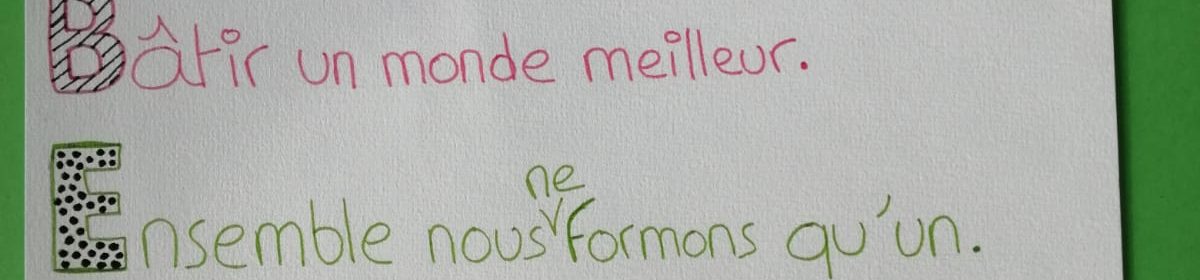 Bâtir un monde meilleur.
Ensemble nous ne formons qu'un.